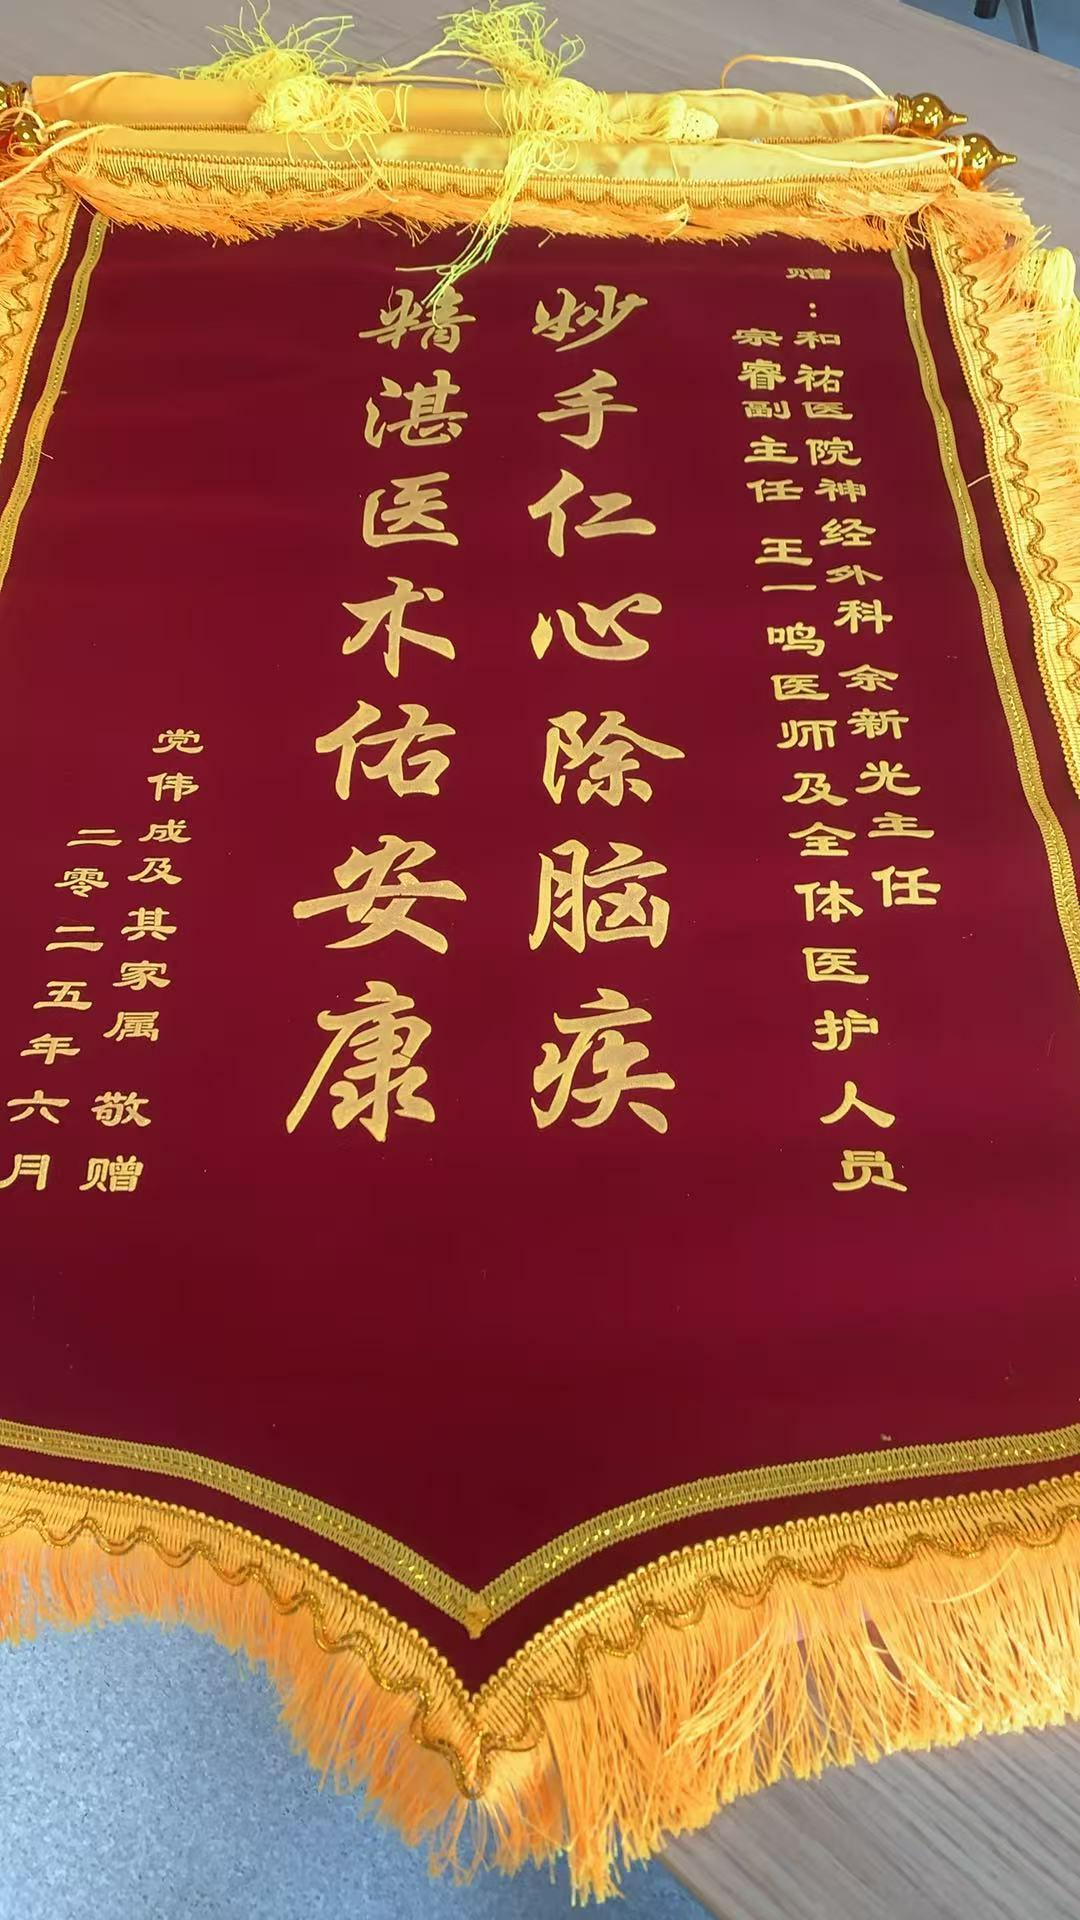 赠：和祐医院神经外科 余新光主任
宗睿副主任 王一鸣医师及全体医护人员
妙手仁心除脑疾
精湛医术佑安康
党伟成及其家属 敬赠
二零二五年六月